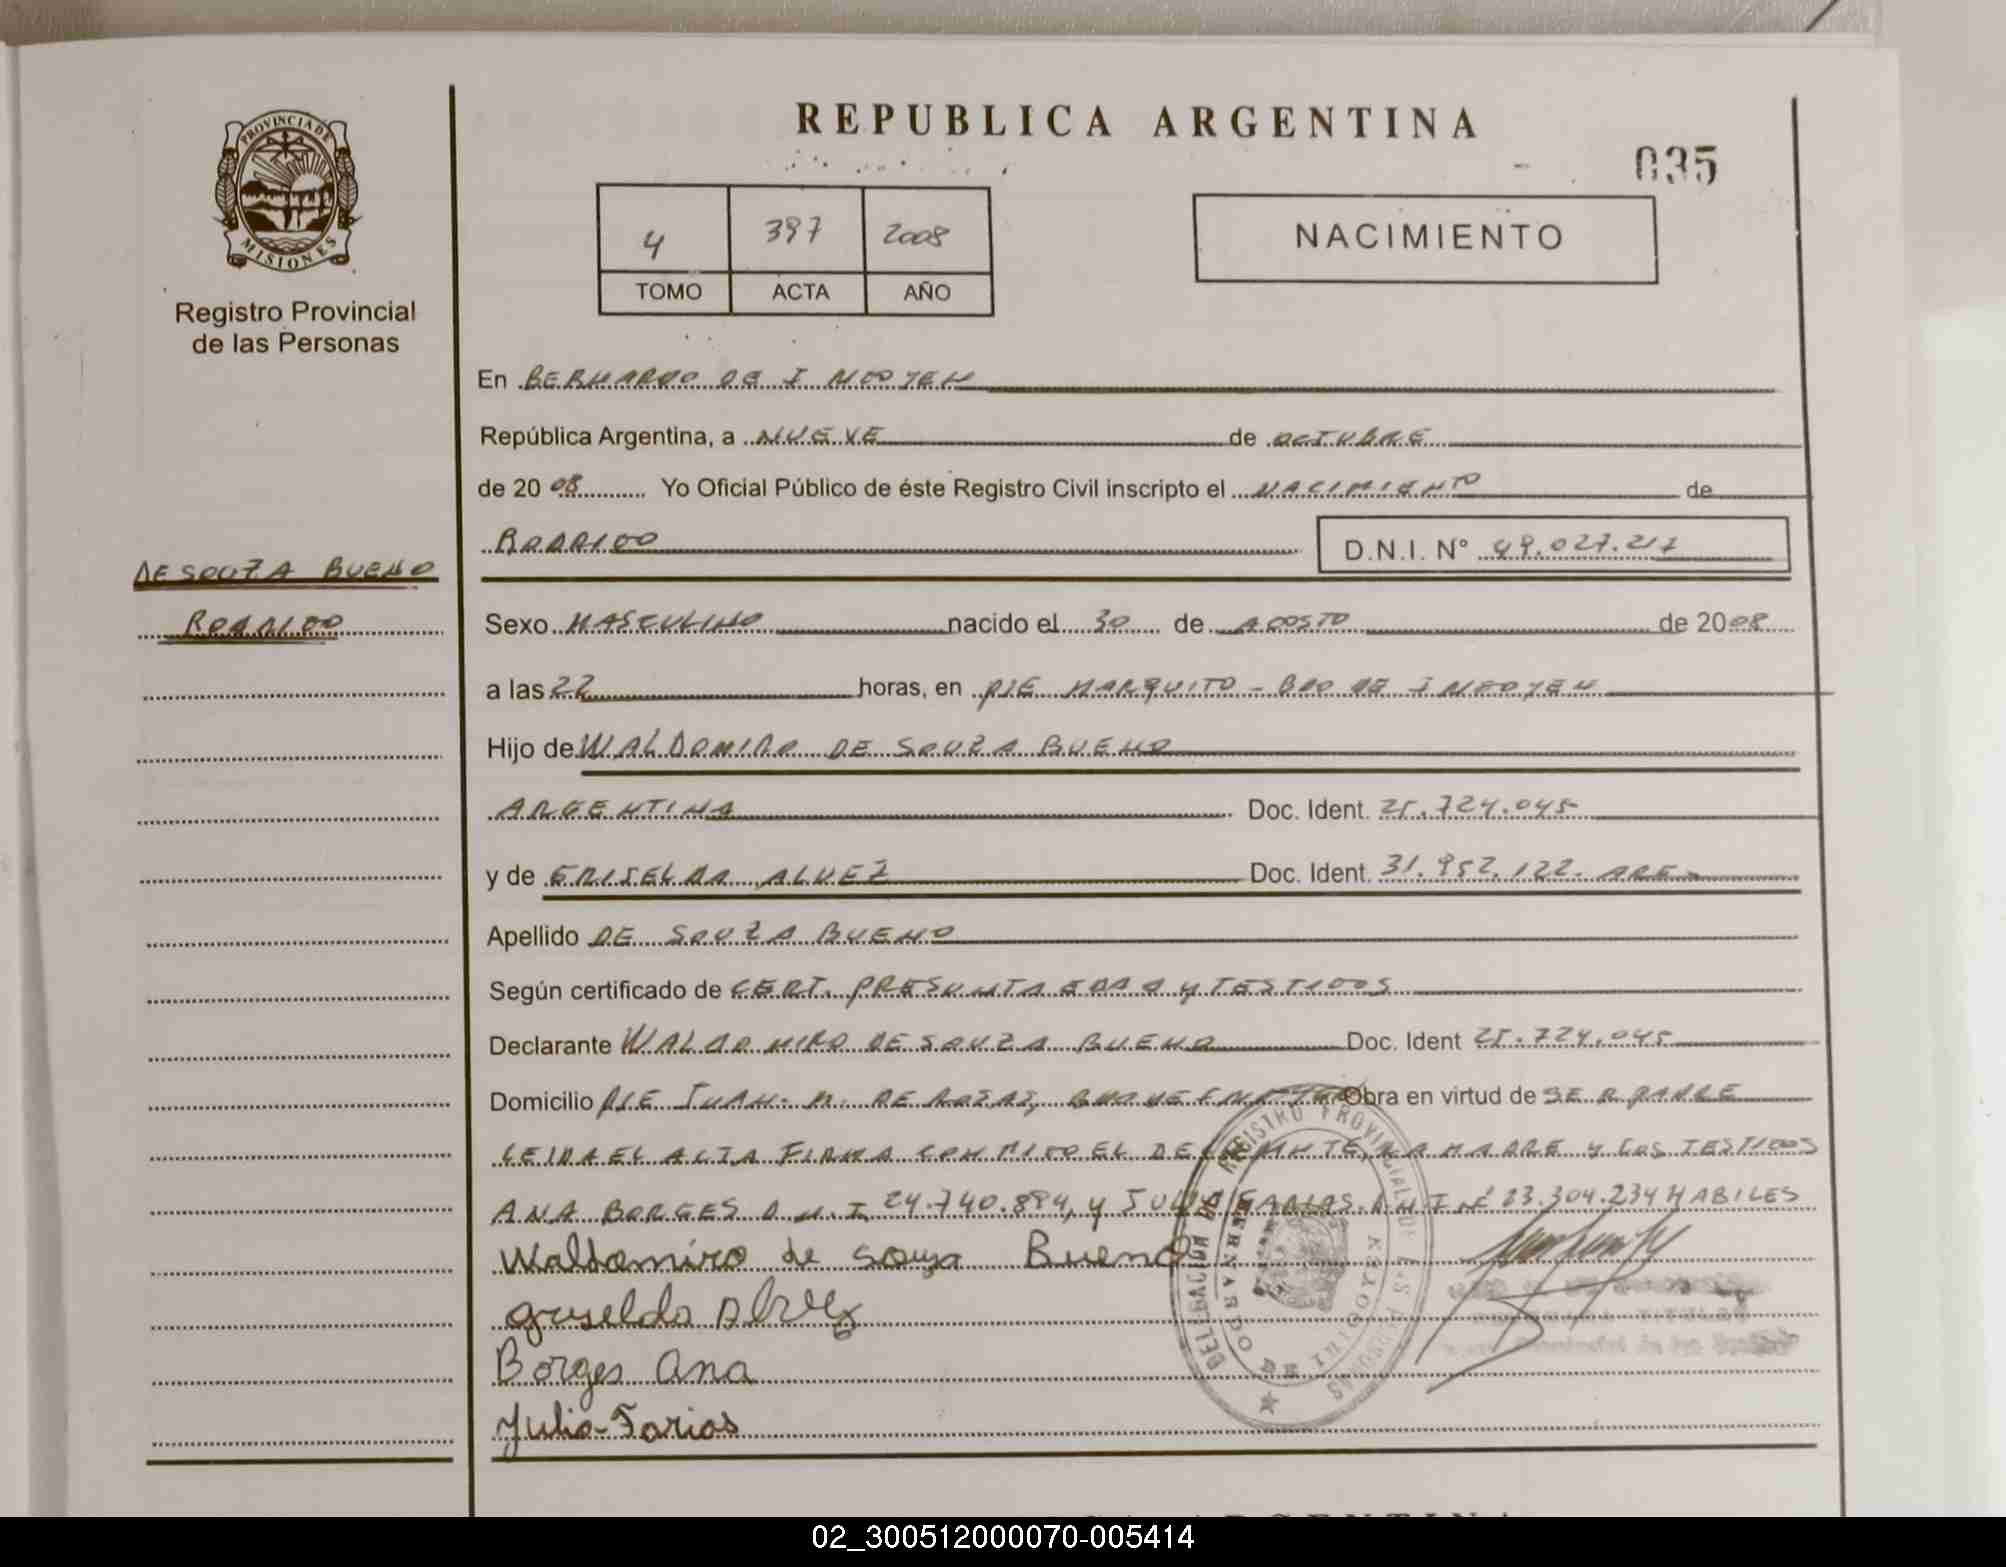 REPUBLICA ARGENTINA
035
PROVINCIA DE MISIONES
Registro Provincial
de las Personas
4 397 2008
TOMO ACTA AÑO
NACIMIENTO
En BERNARDO DE IRIGOYEN
República Argentina, a NUEVE de OCTUBRE
de 2008 Yo Oficial Público de éste Registro Civil inscripto el NACIMIENTO de
RODRIGO D.N.I. N° 49.027.217
DE SOUZA BUENO
RODRIGO
Sexo MASCULINO nacido el 30 de AGOSTO de 2008
a las 22 horas, en PJE MARQUITO - BDO DE IRIGOYEN
Hijo de WALDOMIRO DE SOUZA BUENO
ARGENTINA Doc. Ident. 25.724.045
y de GRISELDA ALVEZ Doc. Ident. 31.952.122. ARG
Apellido DE SOUZA BUENO
Según certificado de CERT. PRESUNTA EDAD Y TESTIGOS
Declarante WALDOMIRO DE SOUZA BUENO Doc. Ident 25.724.045
Domicilio PJE JUAN. M. DE ROSAS, Obra en virtud de SER PADRE
LEIDA EL ACTA FIRMA CONMIGO EL DECLARANTE, LA MADRE Y LOS TESTIGOS
ANA BORGES D.N.I. 24.740.894, y JULIO FARIAS. D.N.I Nº 23.304.234 HABILES
Waldomiro de souza Bueno
Griselda Alvez
Borges Ana
Julio-Farias
02_300512000070-005414